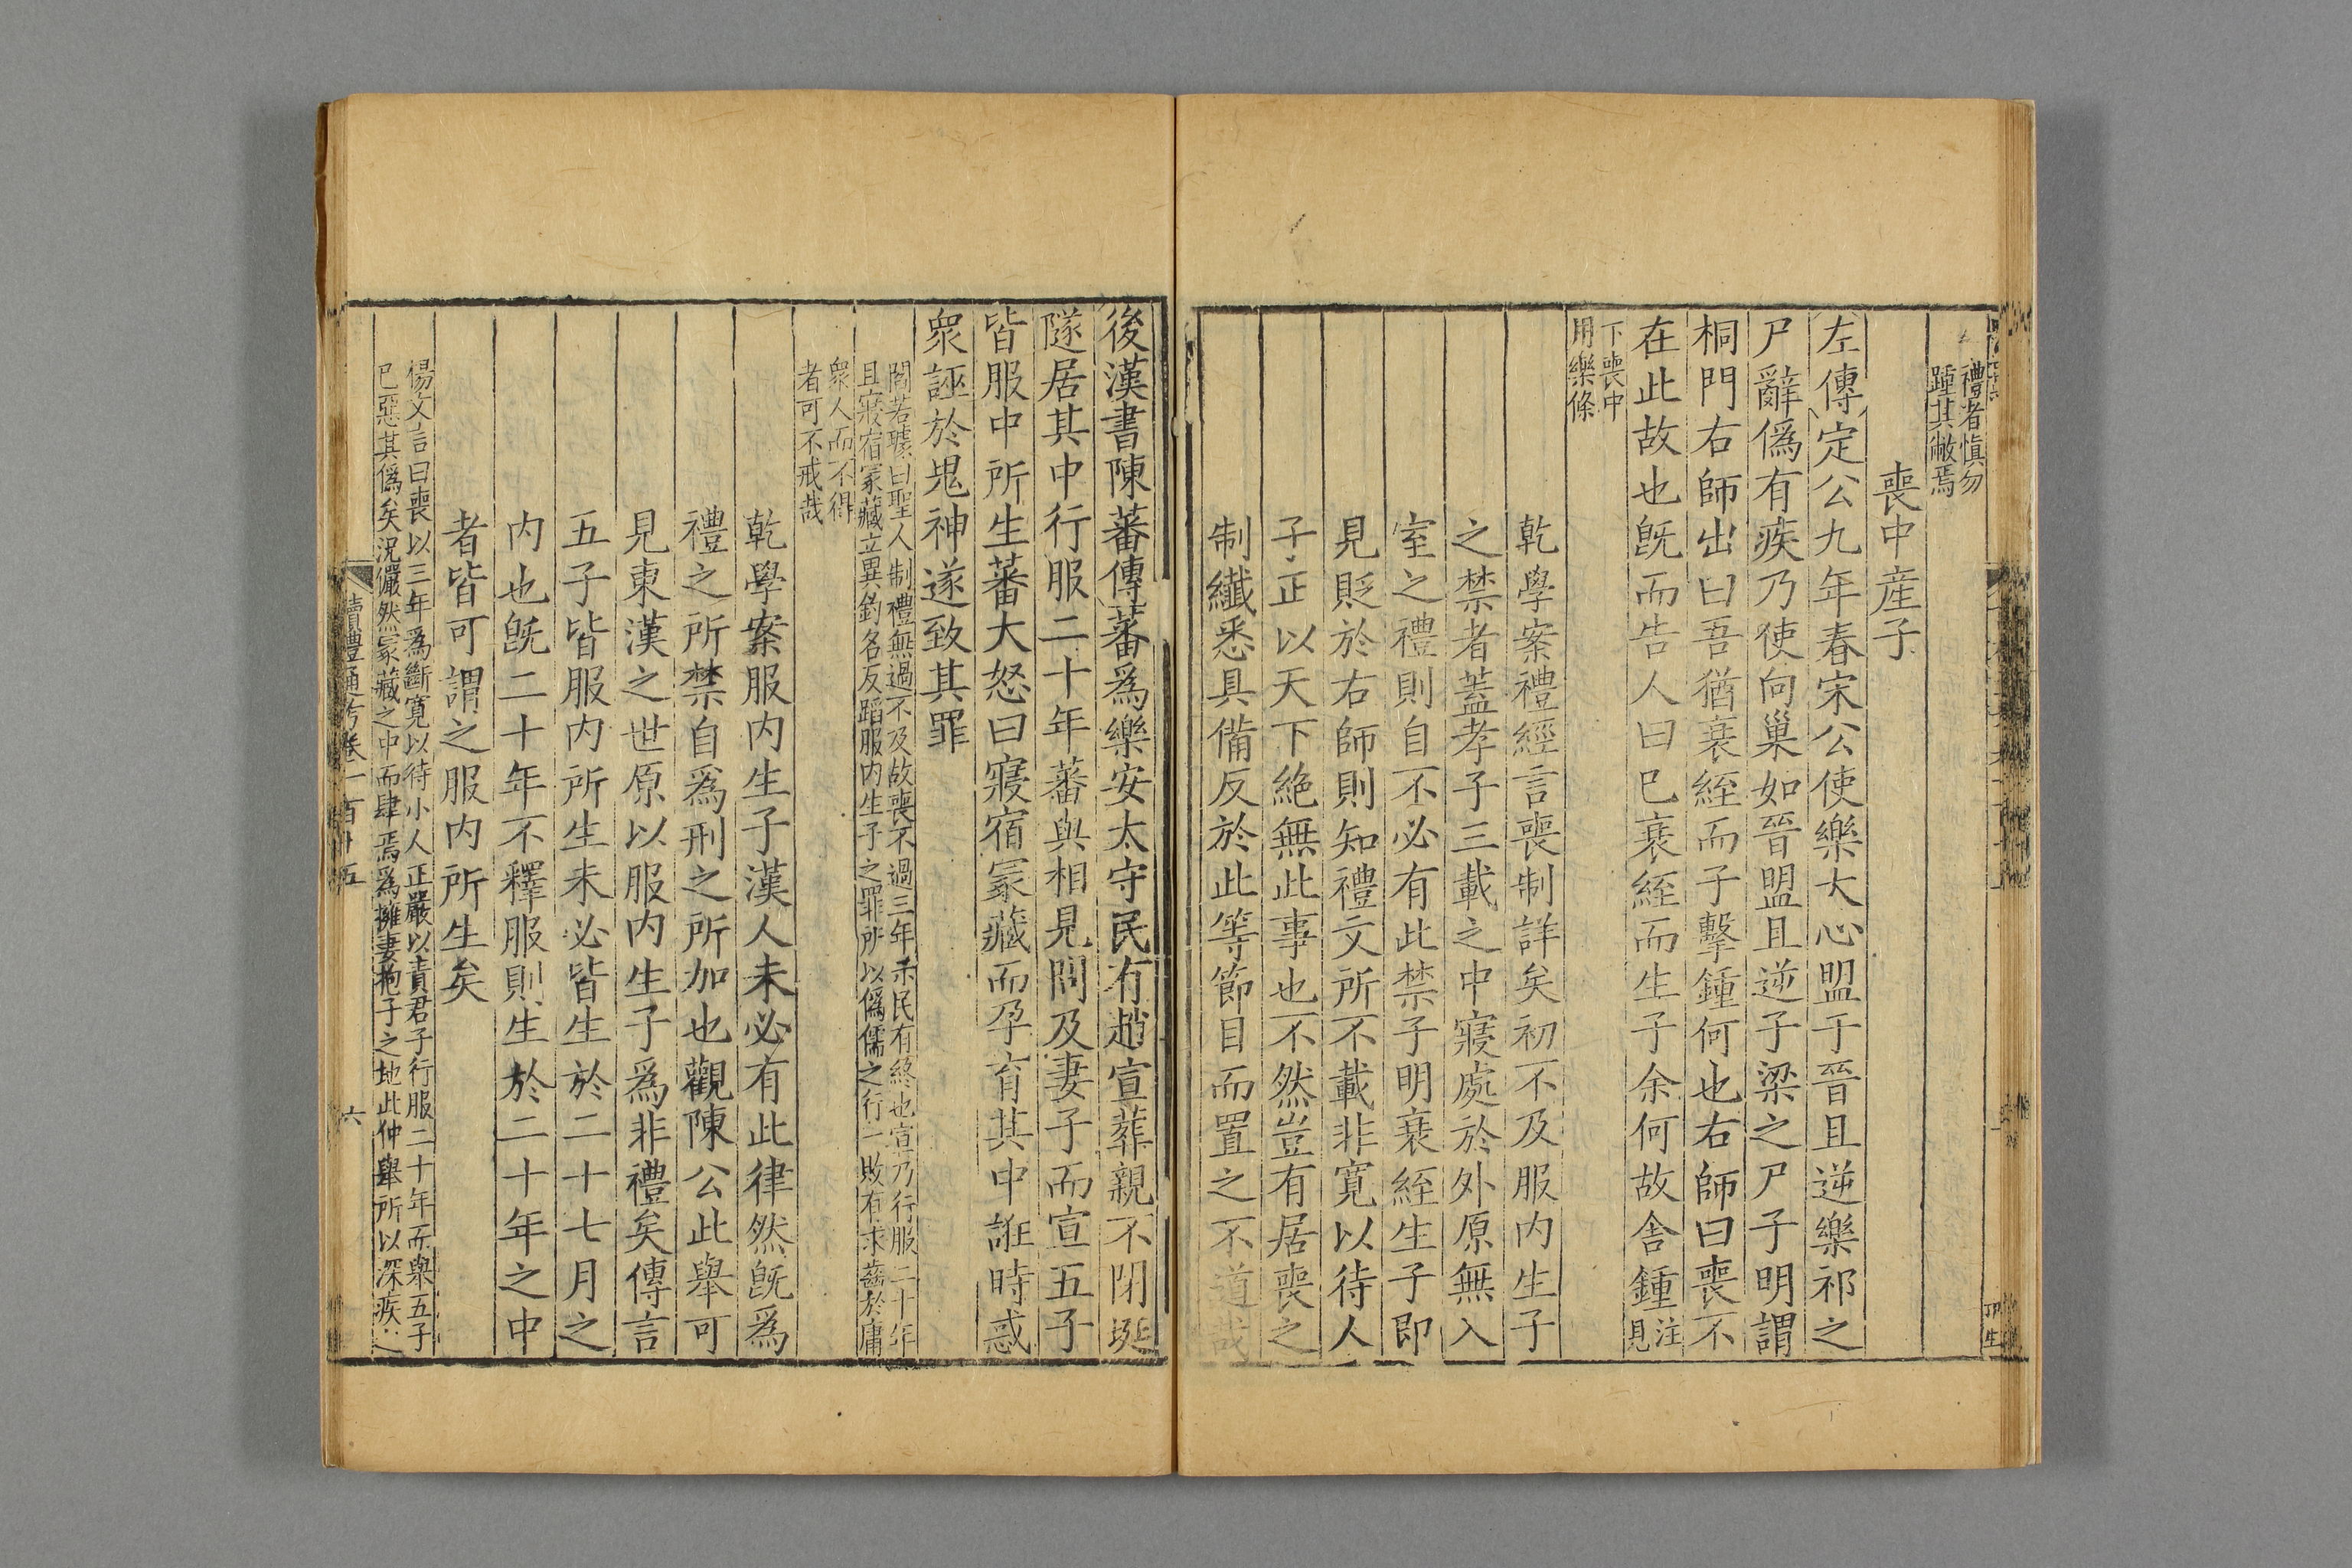 禮者愼勿
踵其敝焉
喪中産子
左傳定公九年春宋公使樂大心盟于晉且逆樂祁之
尸辭僞有疾乃使向巢如晉盟且逆子梁之尸子明謂
桐門右師出曰吾猶衰絰而子擊鍾何也右師曰喪不
在此故也旣而告人曰巳衰絰而生子余何故舍鍾注見
下喪中
用樂條
乾學案禮經言喪制詳矣初不及服内生子
之禁者蓋孝子三載之中寢處於外原無入
室之禮則自不必有此禁子明衰絰生子即
見貶於右師則知禮文所不載非寛以待人
子正以天下絶無此事也不然豈有居喪之
制纖悉具備反於此等節目而置之不道哉
後漢書陳蕃傳蕃爲樂安太守民有趙宣葬親不閉埏
隧居其中行服二十年蕃與相見問及妻子而宣五子
皆服中所生蕃大怒曰寢宿冢藏而孕育其中誑時惑
衆誣於鬼神遂致其罪
閻若璩曰聖人制禮無過不及故喪不過三年示民有終也宣乃行服二十年
且寢宿冢藏立異釣名反蹈服内生子之罪所以僞儒之行一敗有求齒於庸
衆人而不得
者可不戒哉
乾學案服内生子漢人未必有此律然旣爲
禮之所禁自爲刑之所加也觀陳公此舉可
見東漢之世原以服内生子爲非禮矣傳言
五子皆服内所生未必皆生於二十七月之
内也旣二十年不釋服則生於二十年之中
者皆可謂之服内所生矣
楊文言曰喪以三年爲斷寛以待小人正嚴以責君子行服二十年而舉五子
巳惡其僞矣況儼然冢藏之中而肆焉爲擁妻抱子之地此仲舉所以深疾之
讀禮通考卷一百十五
六